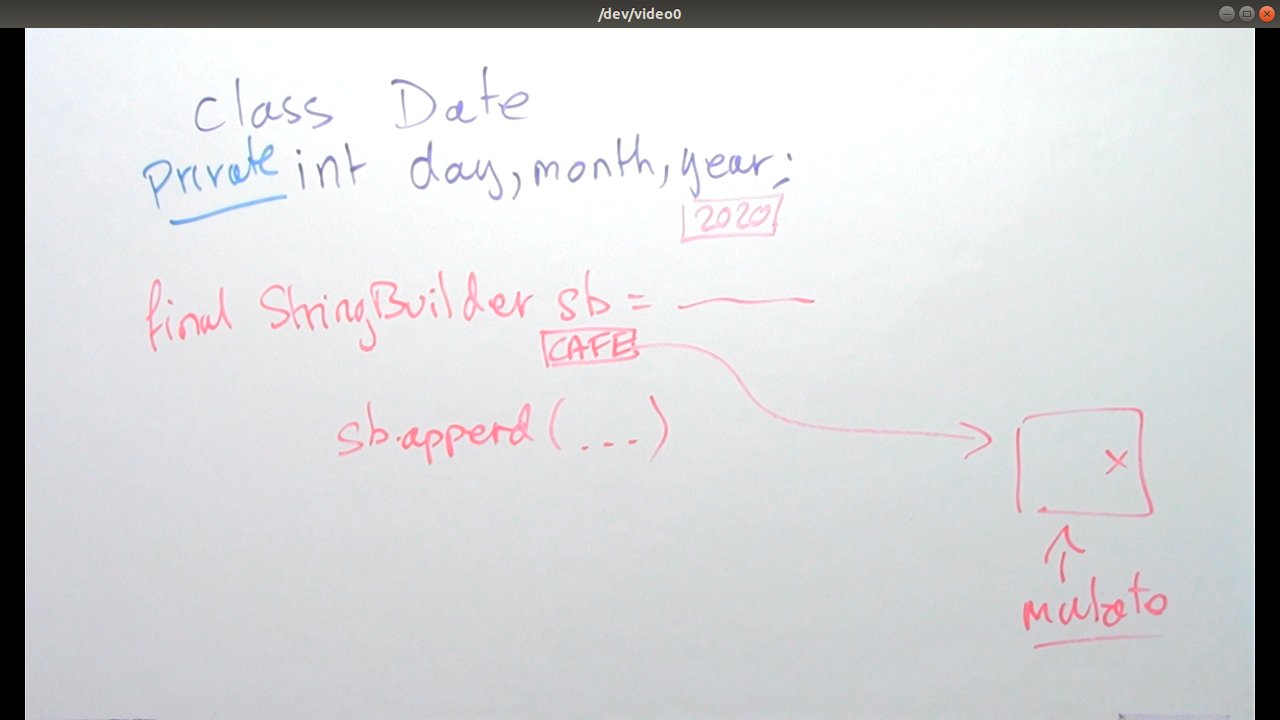 /dev/video0
class Date
private int day, month, year;
2020
final StringBuilder sb =
CAFE
sb.append(...)
x